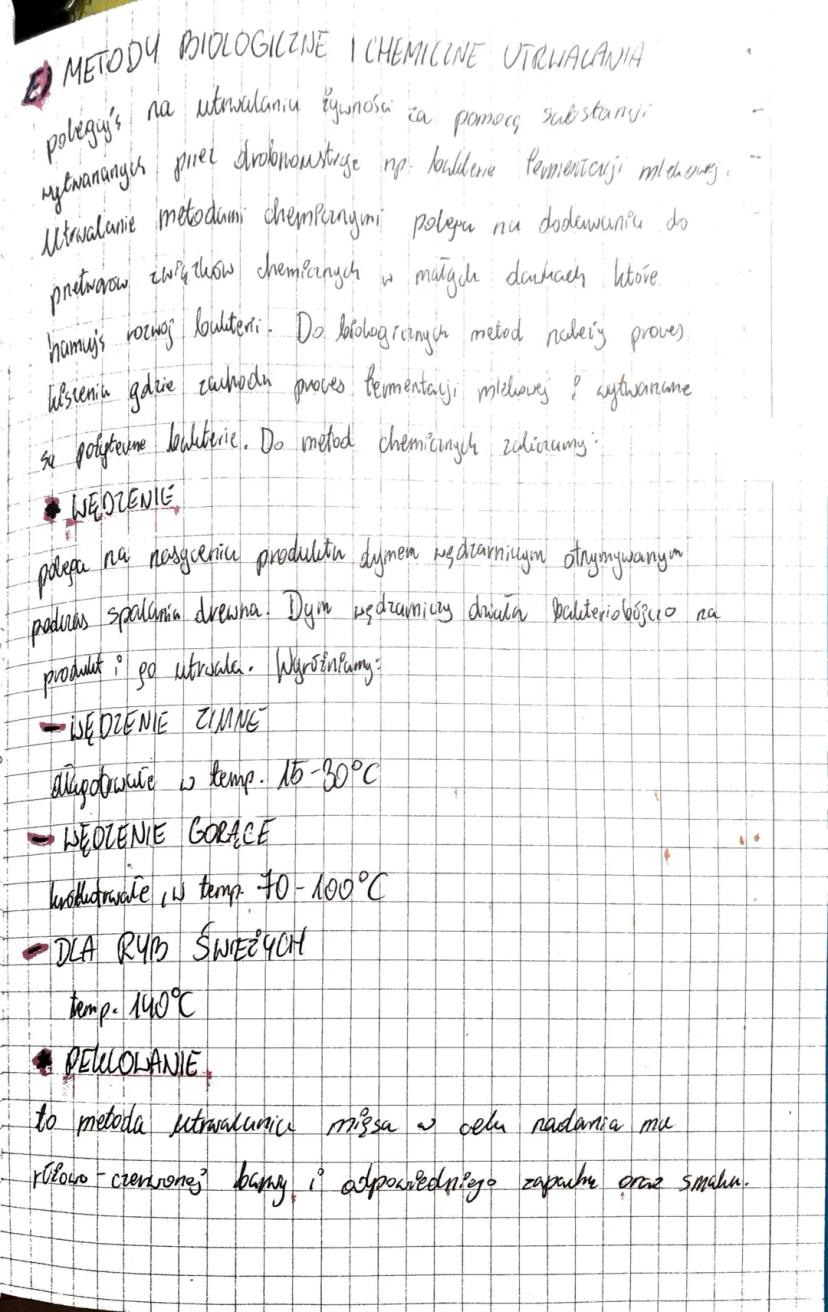 E) METODY BIOLOGICZNE I CHEMICZNE UTRWALANIA
polegają na utrwalaniu żywności za pomocą substancji
wytwarzanych przez drobnoustroje np. bakterie fermentacji mlekowej.
Utrwalanie metodami chemicznymi polega na dodawaniu do
przetworów związków chemicznych w małych dawkach które
hamują rozwój bakterii. Do biologicznych metod należy proces
kiszenia gdzie zachodzi proces fermentacji mlekowej i wytwarzane
są pożyteczne bakterie. Do metod chemicznych zaliczamy:
• WĘDZENIE
polega na nasyceniu produktu dymem wędzarniczym otrzymywanym
podczas spalania drewna. Dym wędzarniczy działa bakteriobójczo na
produkt i go utrwala. Wyróżniamy:
- WĘDZENIE ZIMNE
długotrwałe w temp. 15-30°C
- WĘDZENIE GORĄCE
krótkotrwałe, w temp. 70-100°C
- DLA RYB ŚWIEŻYCH
temp. 140°C
• PEKLOWANIE
to metoda utrwalania mięsa w celu nadania mu
różowo-czerwonej barwy i odpowiedniego zapachu oraz smaku.